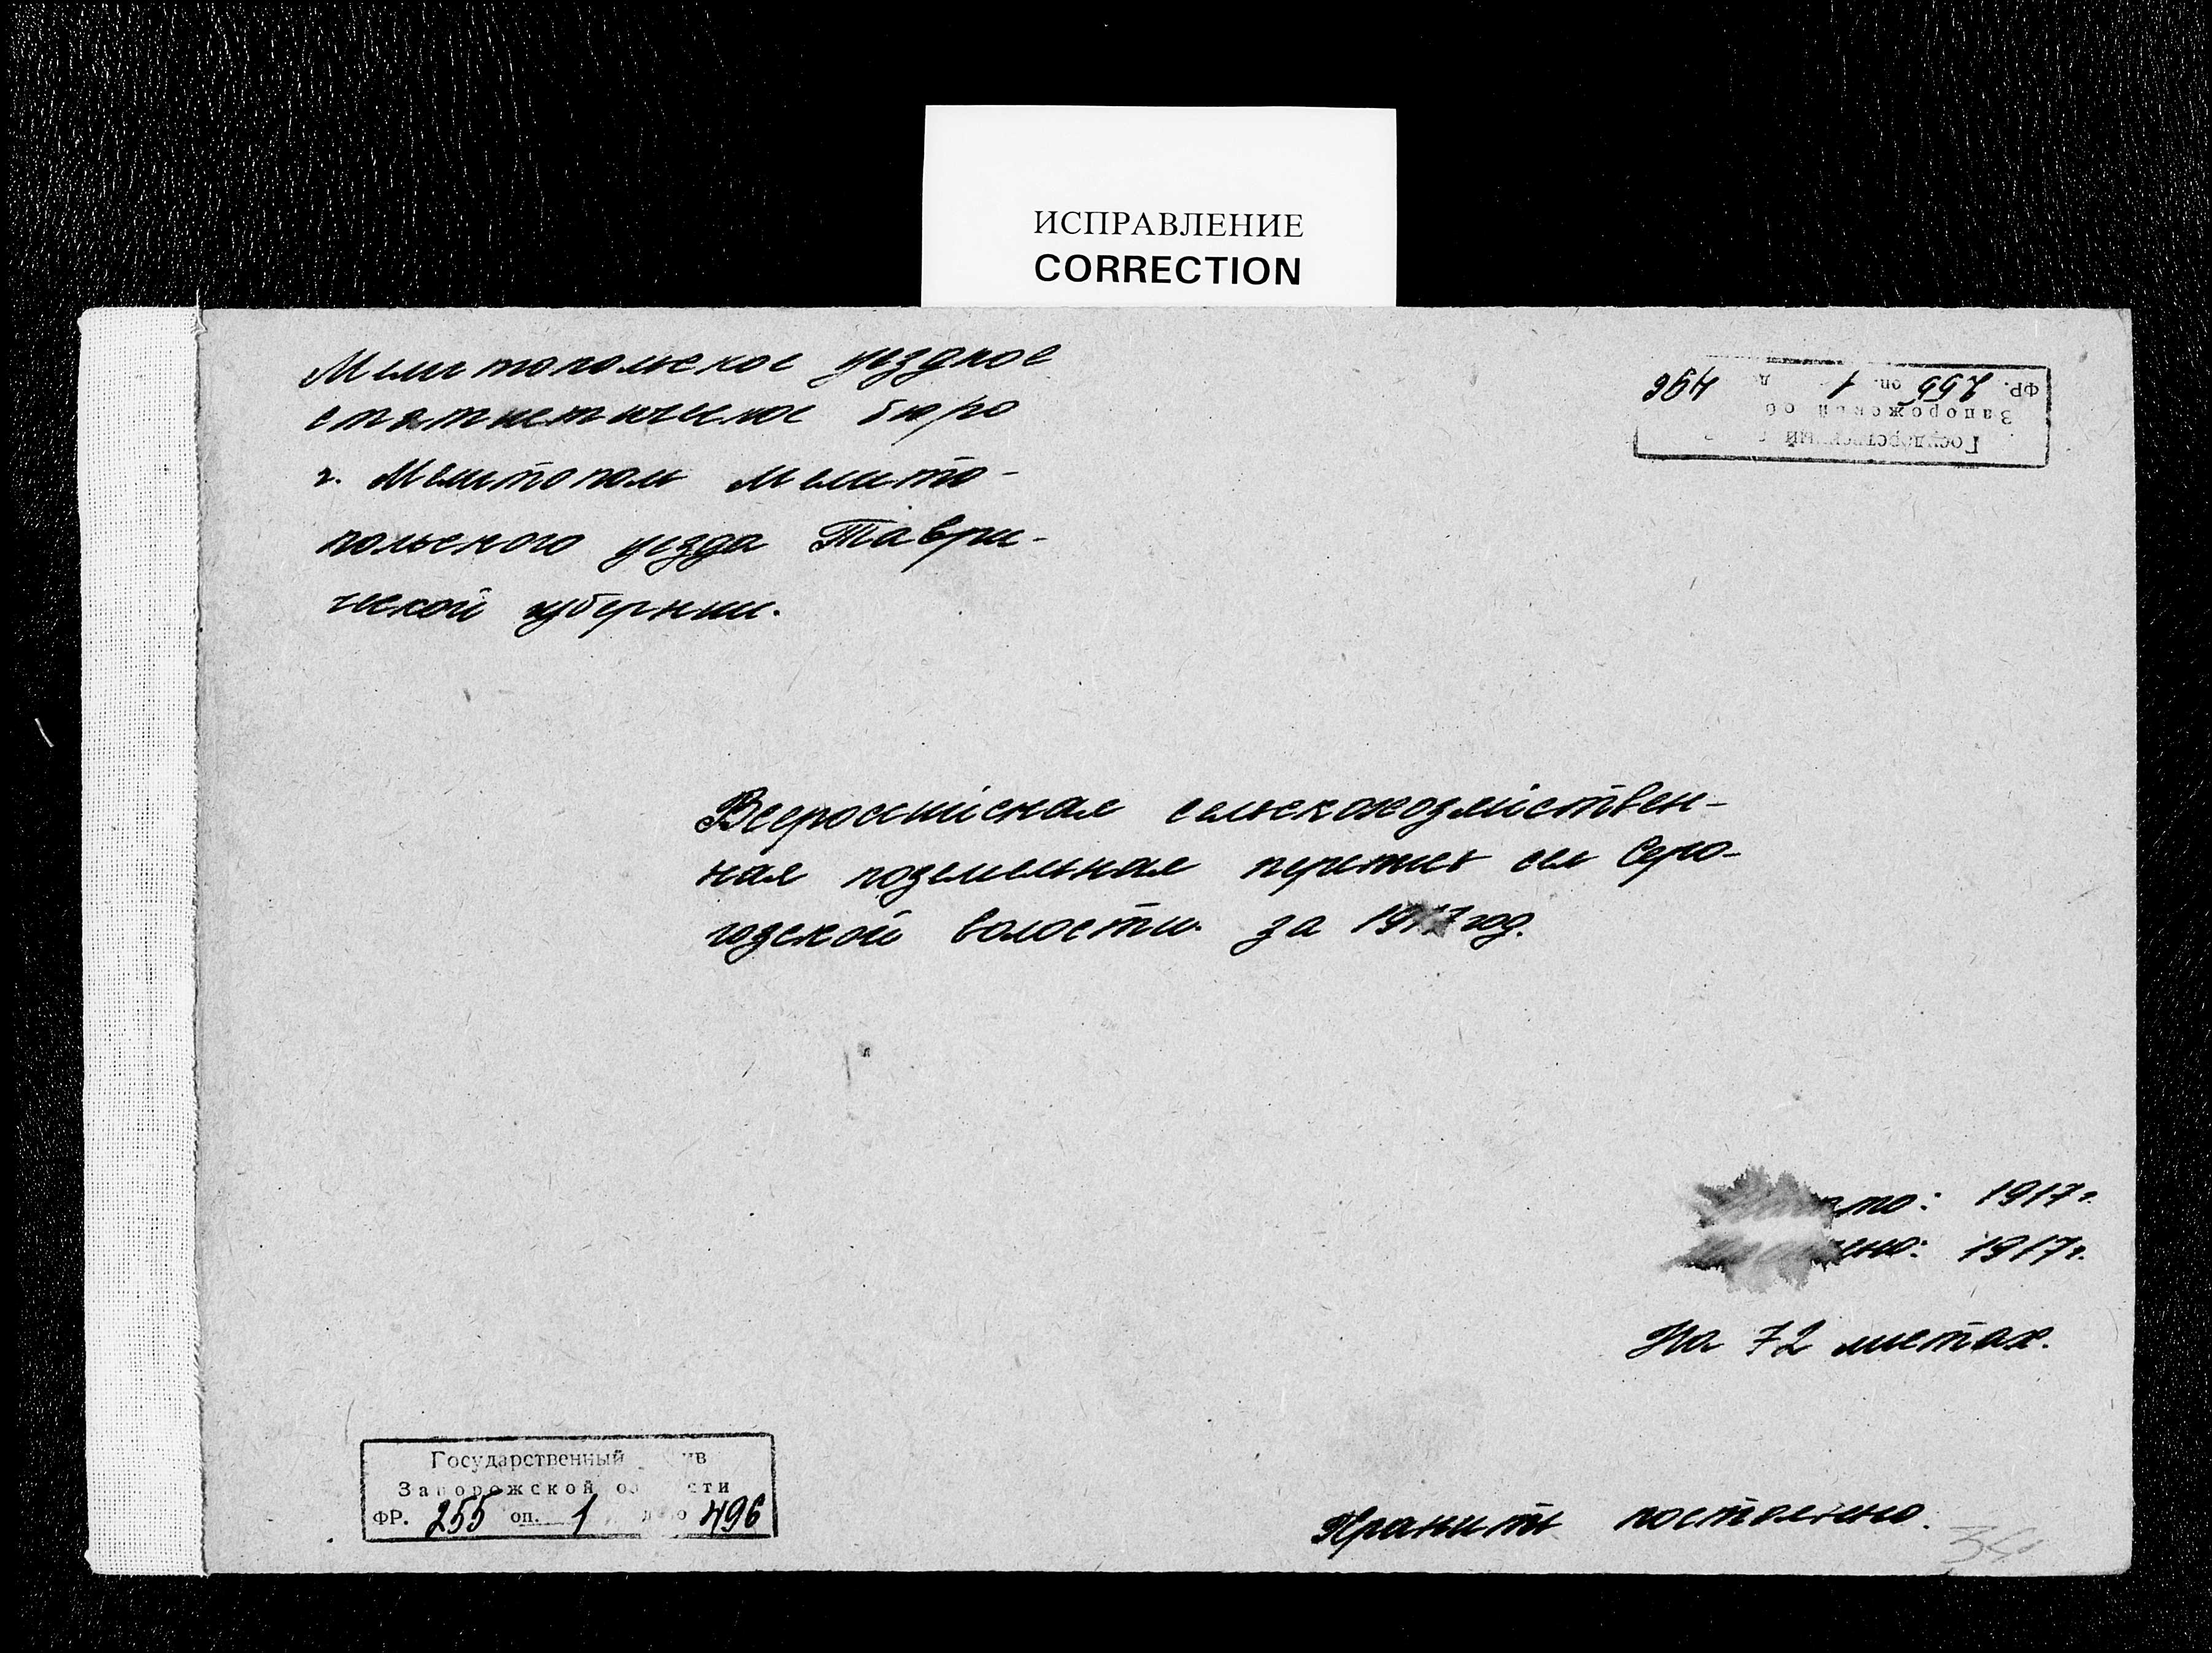 ИСПРАВЛЕНИЕ
CORRECTION
Мелитопольское уездное
статистическое бюро
г. Мелитополь Мелито-
польского уезда Таври-
ческой губернии.
ФР. 255 оп. 1 д 496
Запорожской об
Государственный
Всероссийская сельскохозяйствен-
ная поземельная перепись сел Серо-
гозской волости за 1917 год.
то: 1917 г.
ено: 1917 г.
На 72 листах.
Государственный ив
Запорожской об сти
ФР. 255 оп. 1 д о 496
Хранить постоянно.